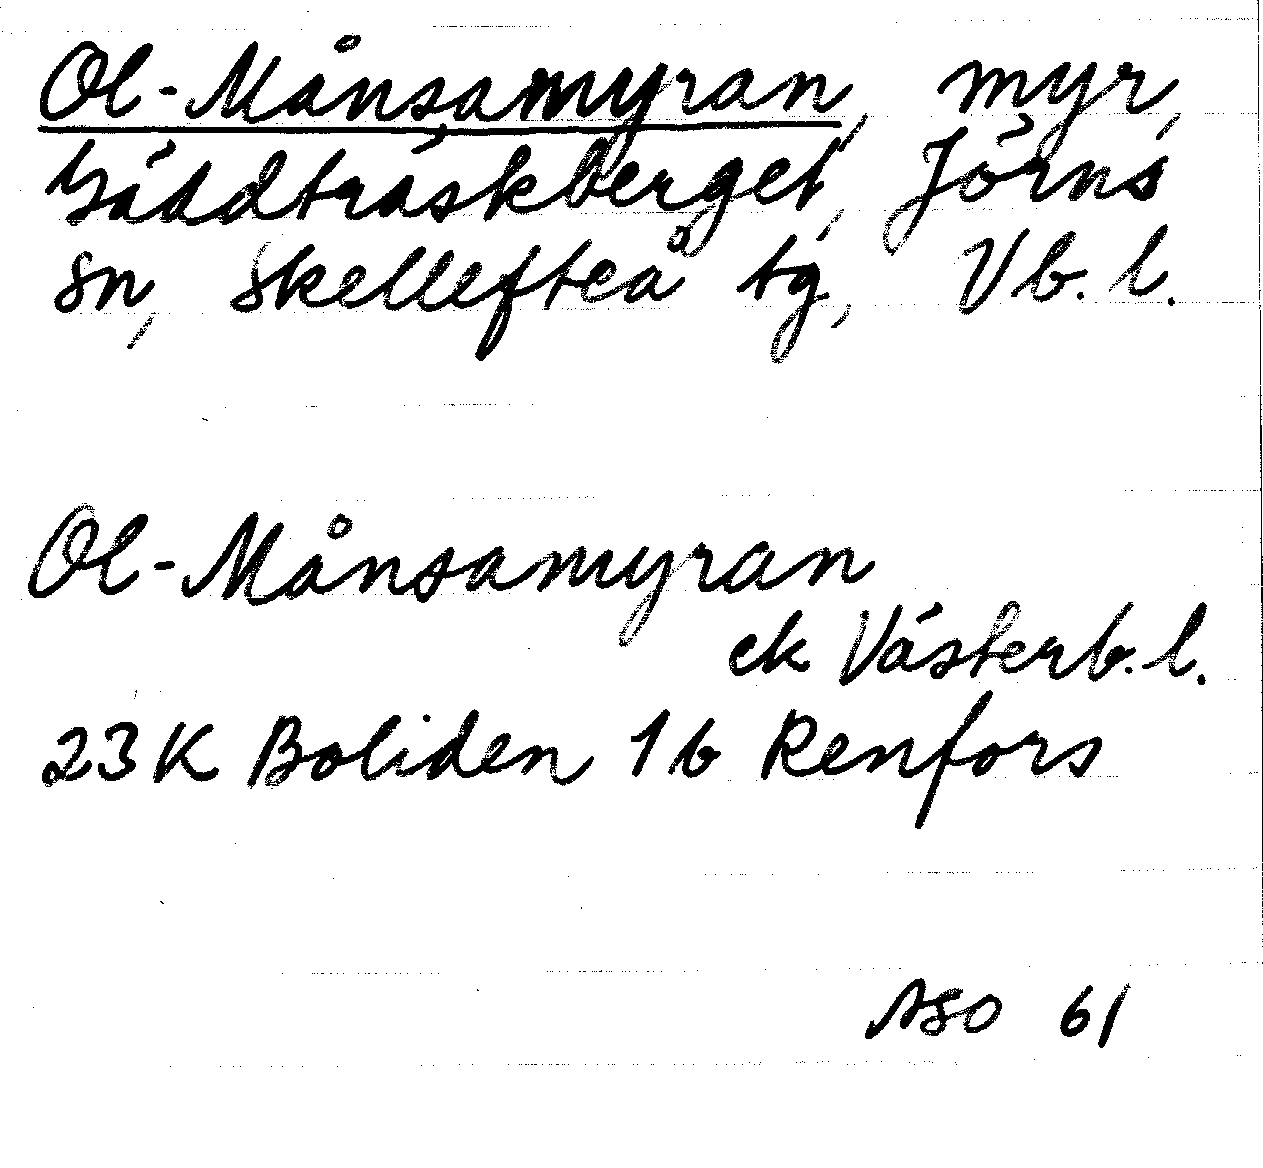 Ol-Månsamyran, myr,
Gäddträskberget, Jörns
sn, Skellefteå tg, Vb. l.
Ol-Månsamyran
ek Västerb. l.
23K Boliden 1b Renfors
ASO 61